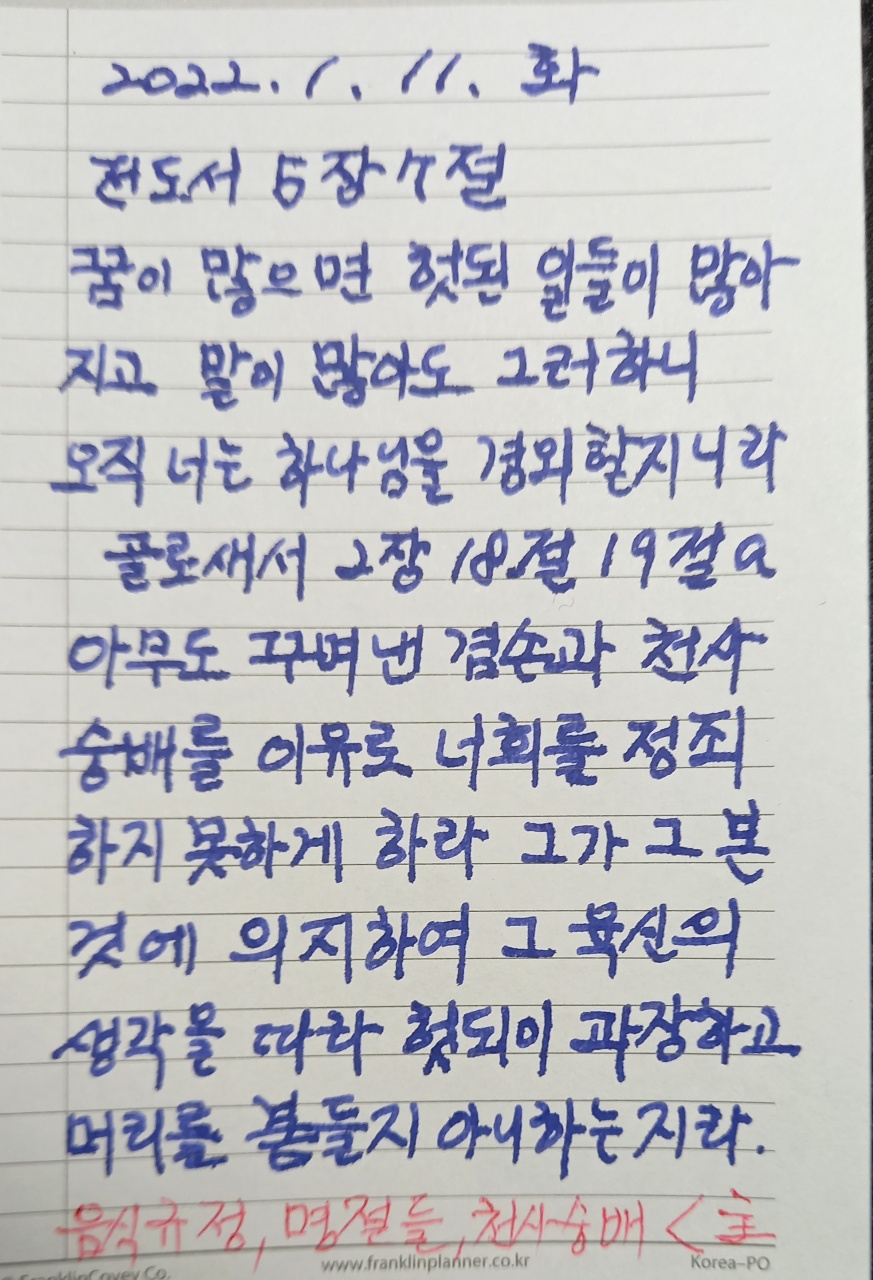 2022. 1. 11. 화
전도서 5장 7절
꿈이 많으면 헛된 일들이 많아
지고 말이 많아도 그러하니
오직 너는 하나님을 경외할지니라
골로새서 2장 18절 19절a
아무도 꾸며낸 겸손과 천사
숭배를 이유로 너희를 정죄
하지 못하게 하라 그가 그 본
것에 의지하여 그 육신의
생각을 따라 헛되이 과장하고
머리를 붙들지 아니하는지라.
음식규정, 명절들, 천사숭배 < 主
FranklinCovey Co. www.franklinplanner.co.kr Korea-PO